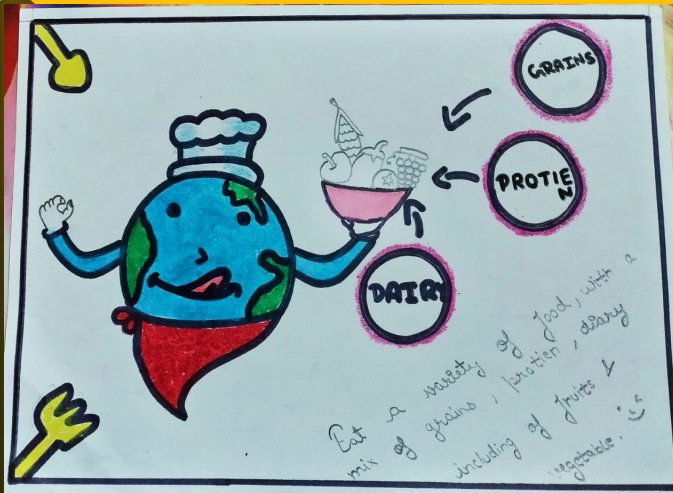 GRAINS
PROTIE
N
DAIRY
Eat a variety of food, with a
mix of grains, protien, diary
including of fruits &
vegetable.